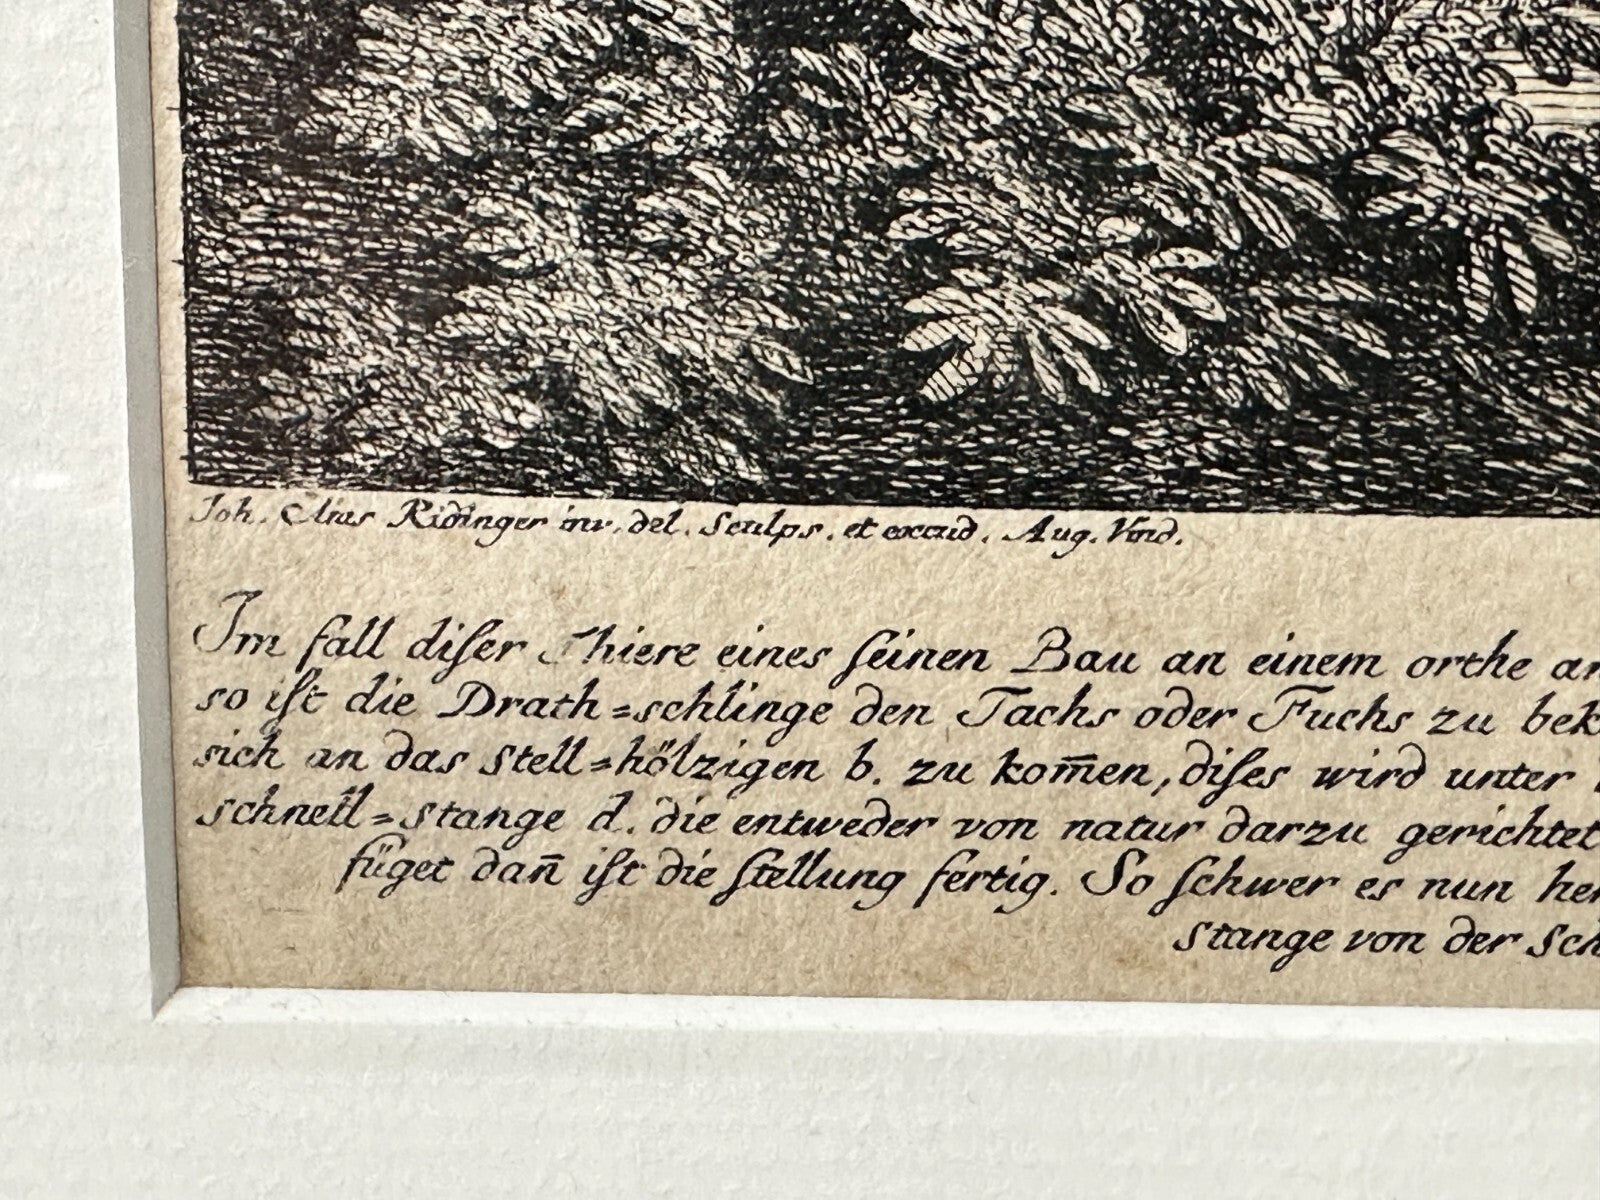 Joh. Elias Ridinger inv. del. Sculps. et excud. Aug. Vind.
Im fall diſer Thiere eines ſeinen Bau an einem orthe an
so iſt die Drath=schlinge den Tachs oder Fuchs zu bek
sich an das stell=hölzigen b. zu kom̄en, diſes wird unter
schnell=stange d. die entweder von natur darzu gerichtet
füget dan̄ iſt die ſtellung fertig. So ſchwer es nun her
stange von der Sch